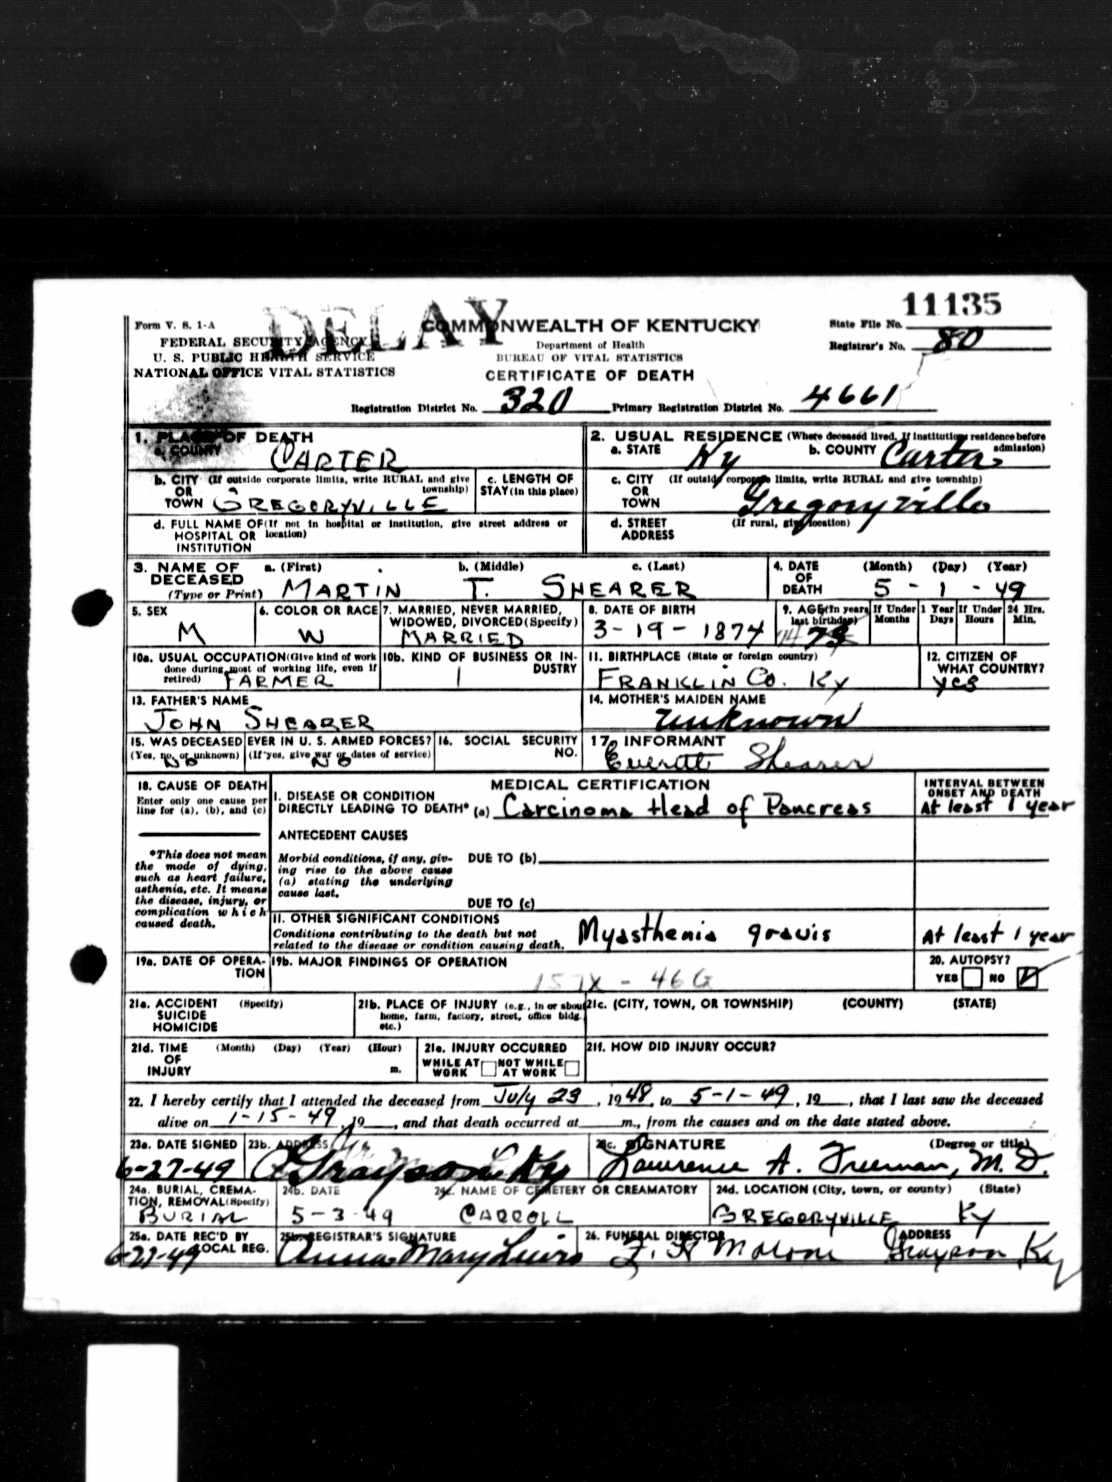 11135
DELAY
Form V. S. 1-A
COMMONWEALTH OF KENTUCKY
State File No.
FEDERAL SECURITY AGENCY
Department of Health
Registrar's No. 80
U. S. PUBLIC HEALTH SERVICE
BUREAU OF VITAL STATISTICS
NATIONAL OFFICE VITAL STATISTICS
CERTIFICATE OF DEATH
Registration District No. 320 Primary Registration District No. 4661
1. PLACE OF DEATH
a. COUNTY CARTER
2. USUAL RESIDENCE (Where deceased lived. If institution: residence before admission)
a. STATE Ky b. COUNTY Carter
b. CITY (If outside corporate limits, write RURAL and give township)
OR
TOWN GREGORYVILLE
c. LENGTH OF
STAY (in this place)
c. CITY (If outside corporate limits, write RURAL and give township)
OR
TOWN Gregoryville
d. FULL NAME OF (If not in hospital or institution, give street address or location)
HOSPITAL OR
INSTITUTION
d. STREET (If rural, give location)
ADDRESS
3. NAME OF DECEASED (Type or Print)
a. (First) b. (Middle) c. (Last)
MARTIN T. SHEARER
4. DATE OF DEATH (Month) (Day) (Year)
5 - 1 - 49
5. SEX
M
6. COLOR OR RACE
W
7. MARRIED, NEVER MARRIED, WIDOWED, DIVORCED (Specify)
MARRIED
8. DATE OF BIRTH
3-19-1874
9. AGE (In years last birthday)
If Under 1 Year Months Days
If Under 24 Hrs. Hours Min.
10a. USUAL OCCUPATION (Give kind of work done during most of working life, even if retired)
FARMER
10b. KIND OF BUSINESS OR INDUSTRY
11. BIRTHPLACE (State or foreign country)
FRANKLIN Co. Ky
12. CITIZEN OF WHAT COUNTRY?
yes
13. FATHER'S NAME
JOHN SHEARER
14. MOTHER'S MAIDEN NAME
unknown
15. WAS DECEASED EVER IN U. S. ARMED FORCES?
(Yes, no, or unknown) (If yes, give war or dates of service)
NO NO
16. SOCIAL SECURITY NO.
17. INFORMANT
Everett Shearer
18. CAUSE OF DEATH
Enter only one cause per line for (a), (b), and (c)
MEDICAL CERTIFICATION
INTERVAL BETWEEN ONSET AND DEATH
I. DISEASE OR CONDITION
DIRECTLY LEADING TO DEATH* (a) Carcinoma Head of Pancreas At least 1 year
ANTECEDENT CAUSES
*This does not mean the mode of dying, such as heart failure, asthenia, etc. It means the disease, injury, or complication which caused death.
Morbid conditions, if any, giving rise to the above cause (a) stating the underlying cause last.
DUE TO (b)
DUE TO (c)
II. OTHER SIGNIFICANT CONDITIONS
Conditions contributing to the death but not related to the disease or condition causing death.
Myasthenia gravis At least 1 year
19a. DATE OF OPERATION
19b. MAJOR FINDINGS OF OPERATION
157X - 46G
20. AUTOPSY?
YES NO
21a. ACCIDENT (Specify)
SUICIDE
HOMICIDE
21b. PLACE OF INJURY (e.g., in or about home, farm, factory, street, office bldg., etc.)
21c. (CITY, TOWN, OR TOWNSHIP) (COUNTY) (STATE)
21d. TIME (Month) (Day) (Year) (Hour)
OF
INJURY m.
21e. INJURY OCCURRED
WHILE AT WORK NOT WHILE AT WORK
21f. HOW DID INJURY OCCUR?
22. I hereby certify that I attended the deceased from July 23, 1948, to 5-1-49, 19__, that I last saw the deceased
alive on 1-15-49, 19__, and that death occurred at __m., from the causes and on the date stated above.
23a. DATE SIGNED
6-27-49
23b. ADDRESS
Grayson Ky
23c. SIGNATURE (Degree or title)
Lawrence A. Freeman, M.D.
24a. BURIAL, CREMATION, REMOVAL (Specify)
BURIAL
24b. DATE
5-3-49
24c. NAME OF CEMETERY OR CREAMATORY
CARROLL
24d. LOCATION (City, town, or county) (State)
GREGORYVILLE Ky
25a. DATE REC'D BY LOCAL REG.
6-27-49
25b. REGISTRAR'S SIGNATURE
Anna Mary Lewis
26. FUNERAL DIRECTOR ADDRESS
F. H Malone Grayson Ky